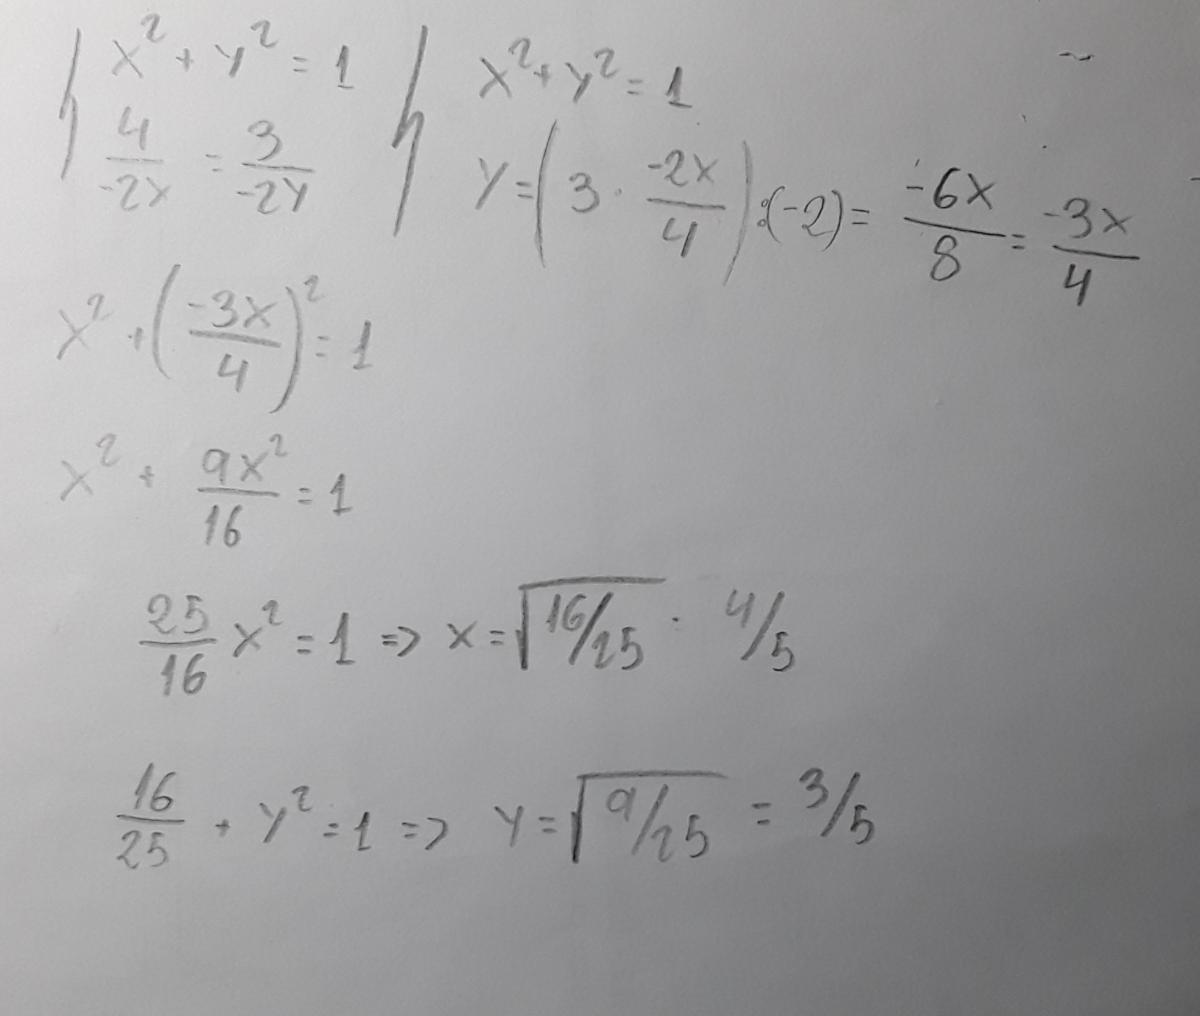 x² + y² = 1
4/-2x = 3/-2y
x² + y² = 1
y = (3 · -2x/4) : (-2) = -6x/8 = -3x/4
x² + (-3x/4)² = 1
x² + 9x²/16 = 1
25/16 x² = 1 => x = √16/25 · 4/5
16/25 + y² = 1 => y = √9/25 = 3/5